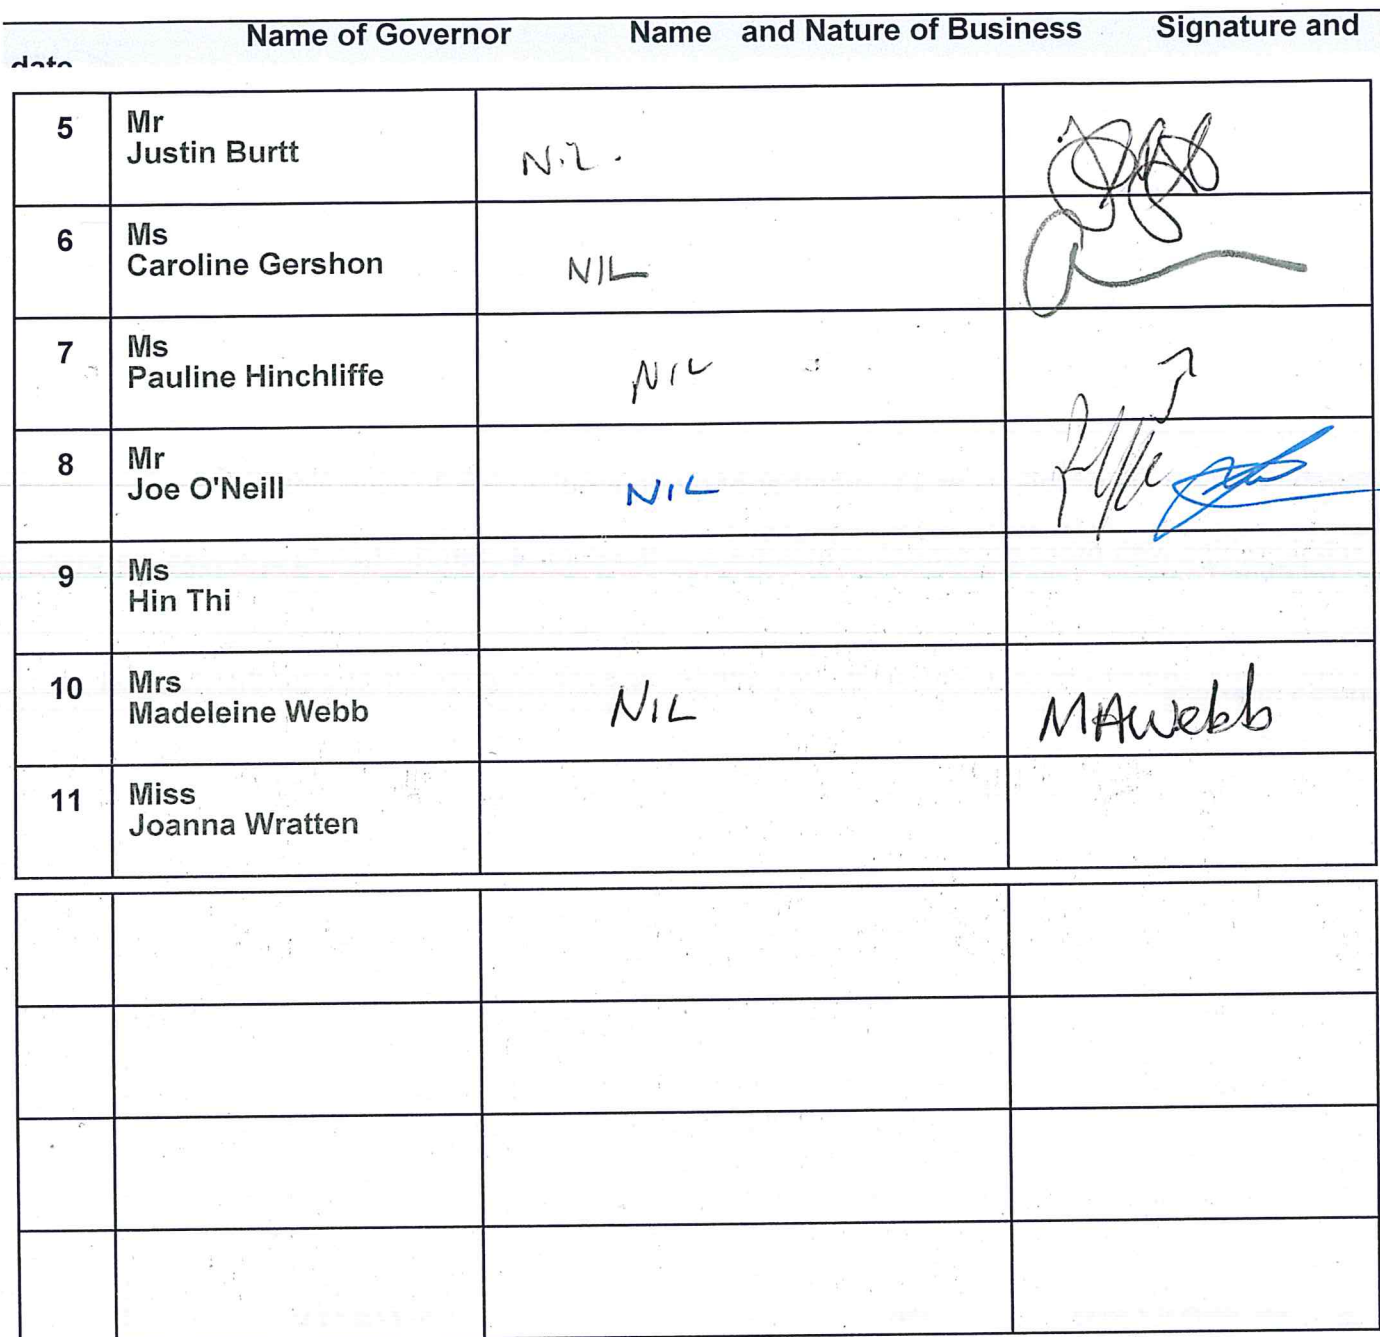 Name of Governor Name and Nature of Business Signature and
date
5 Mr
Justin Burtt Nil.
6 Ms
Caroline Gershon NIL
7 Ms
Pauline Hinchliffe NIL
8 Mr
Joe O'Neill NIL
9 Ms
Hin Thi
10 Mrs
Madeleine Webb NIL MAWebb
11 Miss
Joanna Wratten